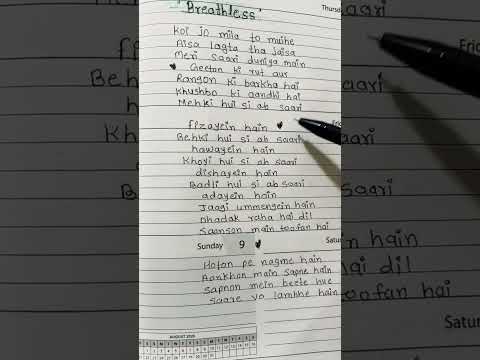 "Breathless"
Koi jo mila to mujhe
Aisa lagta tha jaisa
Meri saari duniya mein
Geeton ki rut aur
Rangon ki barkha hai
Khushbo ki aandhi hai
Mehki hui si ab saari
fizayein hain
Behki hui si ab saari
hawayein hain
Khoyi hui si ab saari
dishayein hain
Badli hui si ab saari
adayein hain
Jaagi ummengein hain
Dhadak raha hai dil
Saanson main toofan hai
Sunday 9
Hoton pe nagme hain
Aankhon main sapne hain
Sapnon mein beete hue
Saare vo lamhhe hain
AUGUST